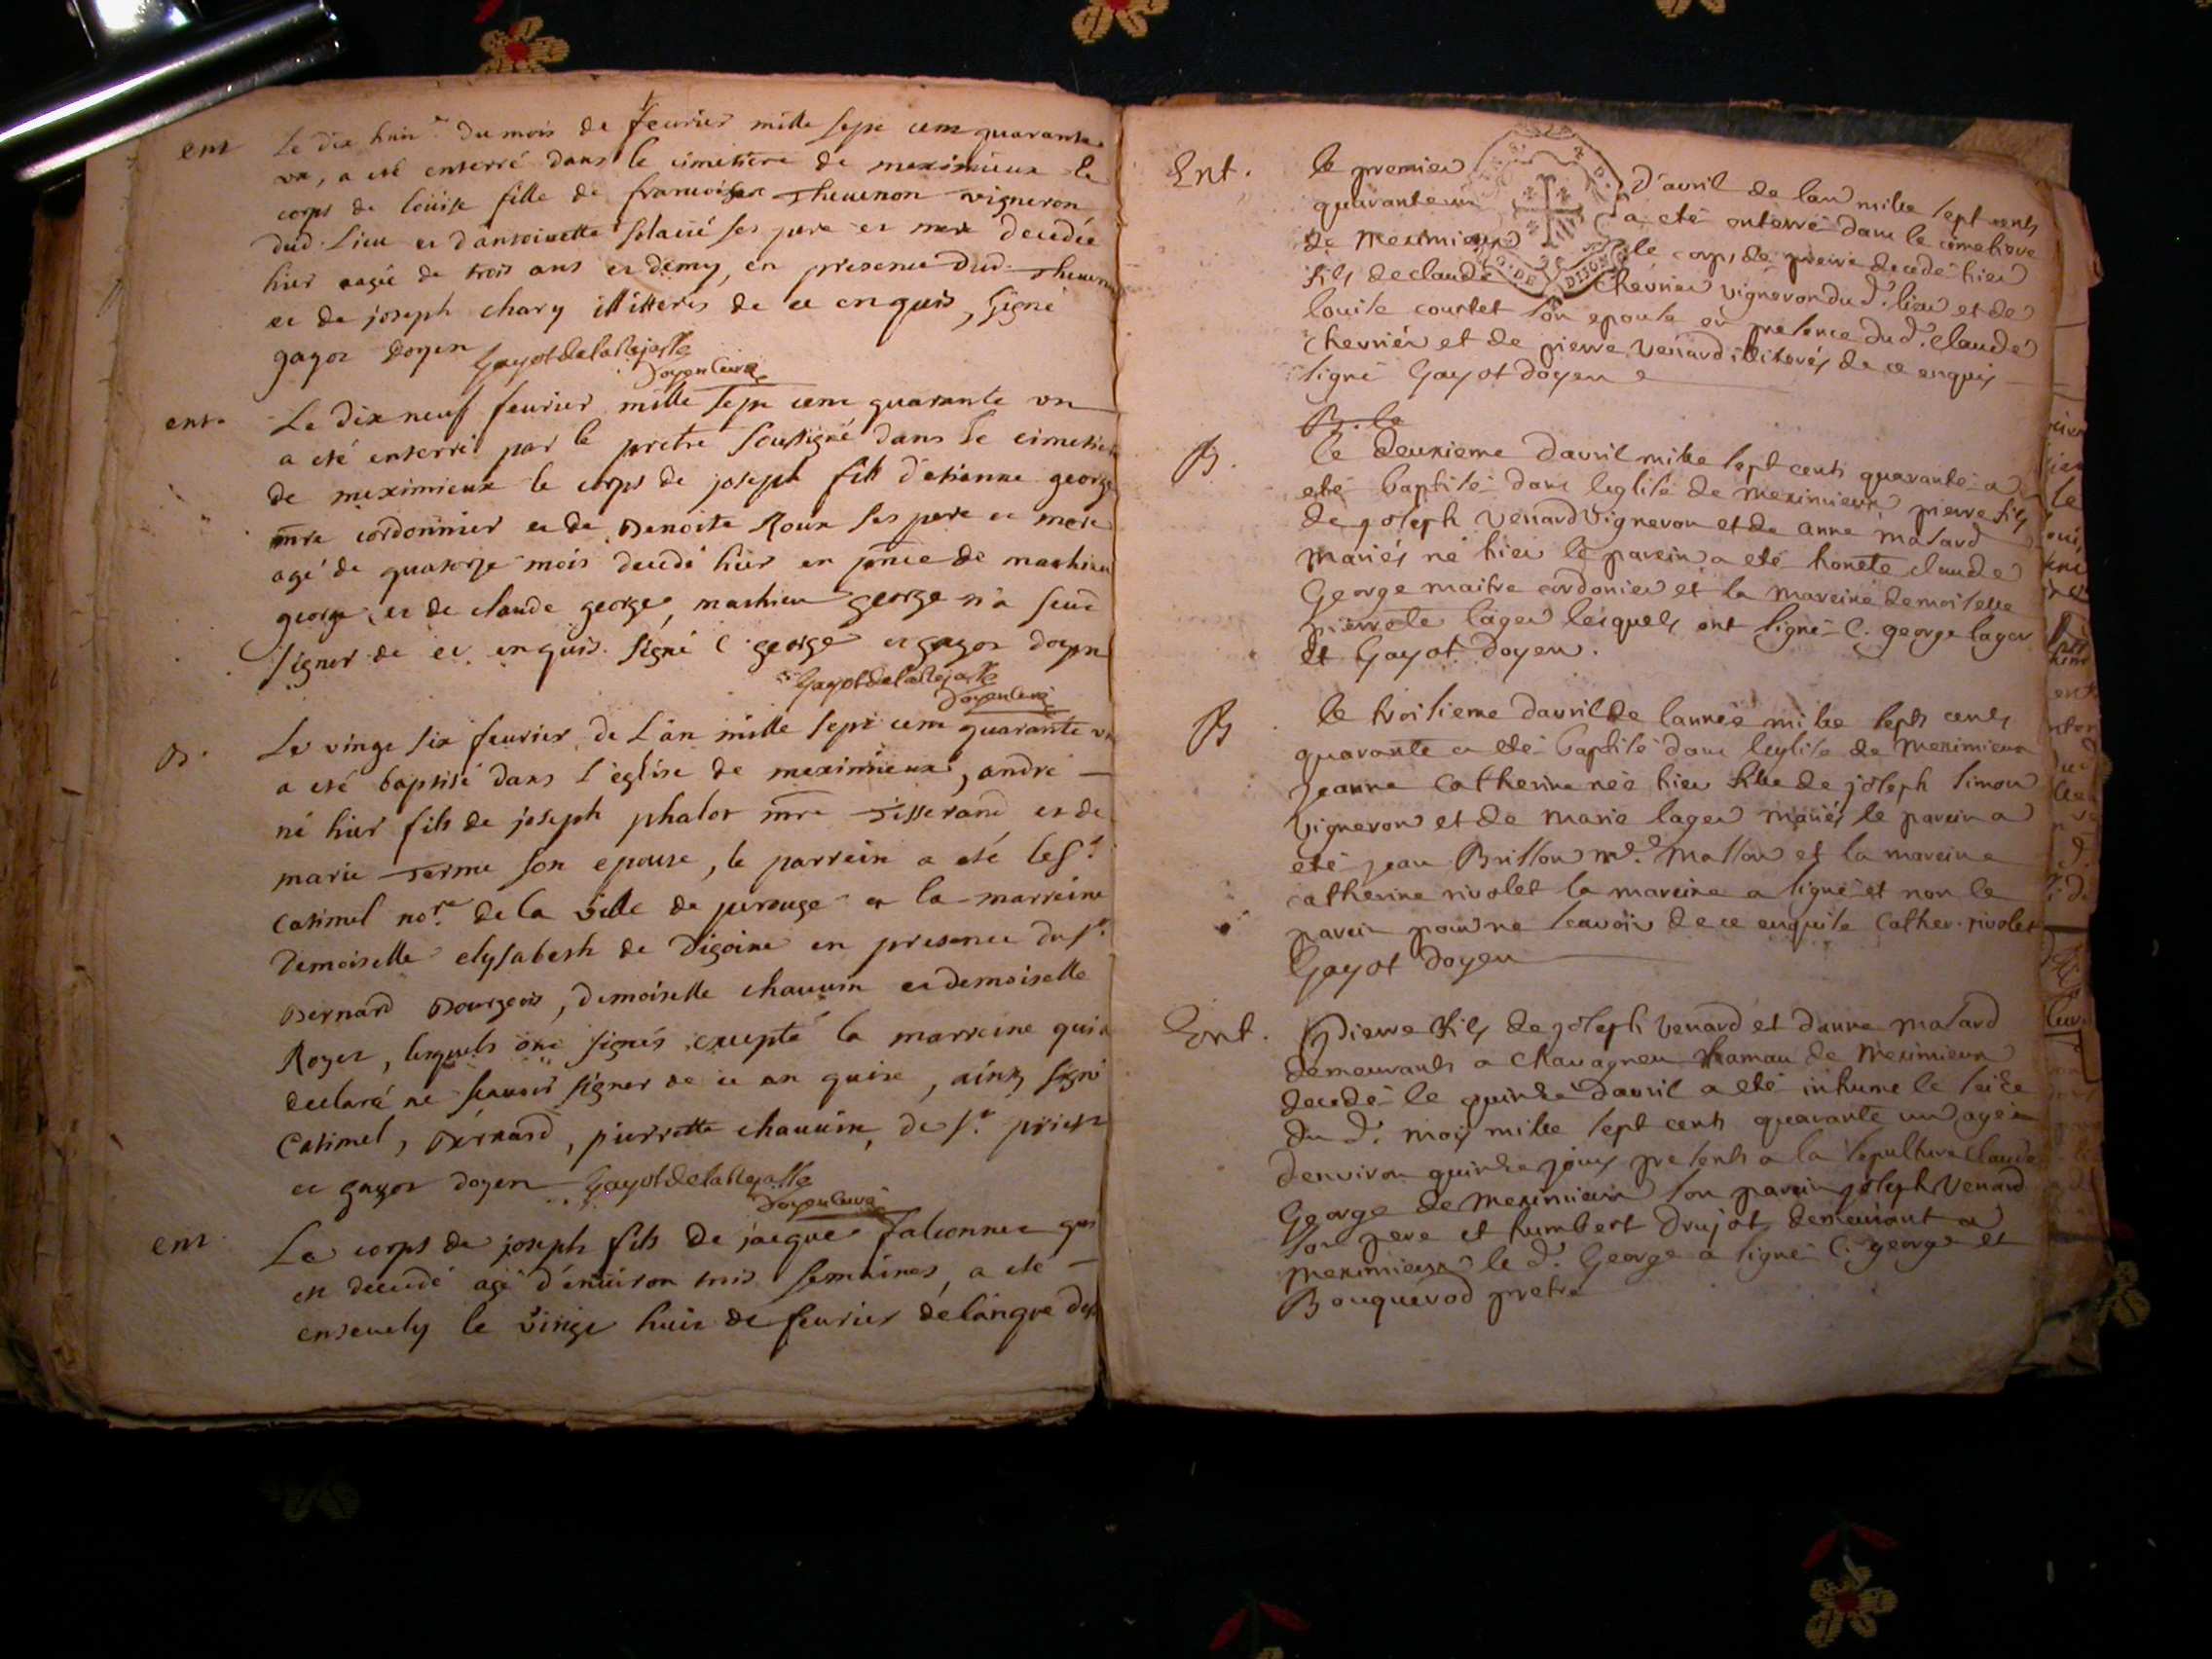 ent Le dix huit.e du mois de feurier mille sept cent quarante
un, a eté enterré dans le cimetiere de meximieux le
corps de loüise fille de francois theuenon vigneron
dud. Lieu et d'antoinette ses pere et mere decedée
hier aagée de trois ans et demy, en presence dud. theuenon
et de joseph chary illitteres de ce enquis, signé
gayot doyen Gayot delabejasse
Doyen Curé
ent. Le dix neuf feurier mille sept cent quarante un
a eté enterré par le pretre soussigné dans le cimetiere
de meximieux le corps de joseph fils d'etienne george
mre cordonnier et de Benoite Roux ses pere et mere
agé de quatorze mois decedé hier en pnce de mathieu
george et de claude george, mathieu george n'a sceu
signer de ce enquis. signé C george et gayot doyen
Gayot delabejasse
Doyen Curé
B. Le vingt six feurier de L'an mille sept cent quarante un
a eté baptisé dans l'eglise de meximieux, andré
né hier fils de joseph phalot mre Tisserand et de
marie Terme son epouse, le parrein a eté le Sr.
Catimel no.re de la ville de perouge et la marreine
Demoiselle elysabeth de Digoine en presence du sr.
Bernard Bourgeois, demoiselle chauuin et demoiselle
Royer, lesquels ont signés excepté la marreine qui a
declaré ne scauoir signer de ce en quise, ainsy signé
Catimel, Bernard, pierrette chauuin, de st. priest
et gayot doyen Gayot delabejasse
Doyen Curé
ent Le corps de joseph fils de jacque falconnet qui
est decedé agé d'enuiron trois semaines, a eté
enseuely le vingt huit de feurier de
Ent. le premier d'avril de lan mille sept cents
quarante un a eté enterré dans le cimetiere
de Meximieux le corps de pierre decedé hier
fils de claude Chevrier vigneron du d. lieu et de
louise courtet son epouse en presence du d. claude
chevrier et de pierre Venard illiterés de ce enquis
signé Gayot doyen
B. le
B. le deuxieme davril mille sept cents quarante a
eté baptisé dans leglise de Meximieux pierre fils
de joseph Venard Vigneron et de anne masard
mariés né hier le parein a eté honete claude
George maitre cordonier et la mareine demoiselle
pierrete lager lesquels ont signé C. george lager
et Gayot doyen.
B le troisieme davril de lannée mille septs cents
quarante a eté baptisé dans leglise de Meximieux
Jeanne Catherine née hier fille de joseph simon
Vigneron et de marie lager mariés le parein a
eté jean Brisson md. Masson et la mareine
catherine rivolet la mareine a signé et non le
parein pour ne scavoir de ce enquise Cather. rivolet
Gayot doyen
Ent. Pierre fils de joseph Venard et danne masard
demeurants a Chavagneu hamau de Meximieux
decedé le quinze davril a eté inhume le seize
du d. mois mille sept cents quarante un agé
denviron quinze jours presents a la sepulture Claude
George de Meximieux son parein joseph Venard
son pere et humbert Drujat demeurant a
Meximieux le d. George a signé C. george et
Bouquerod pretre
DE DIJON